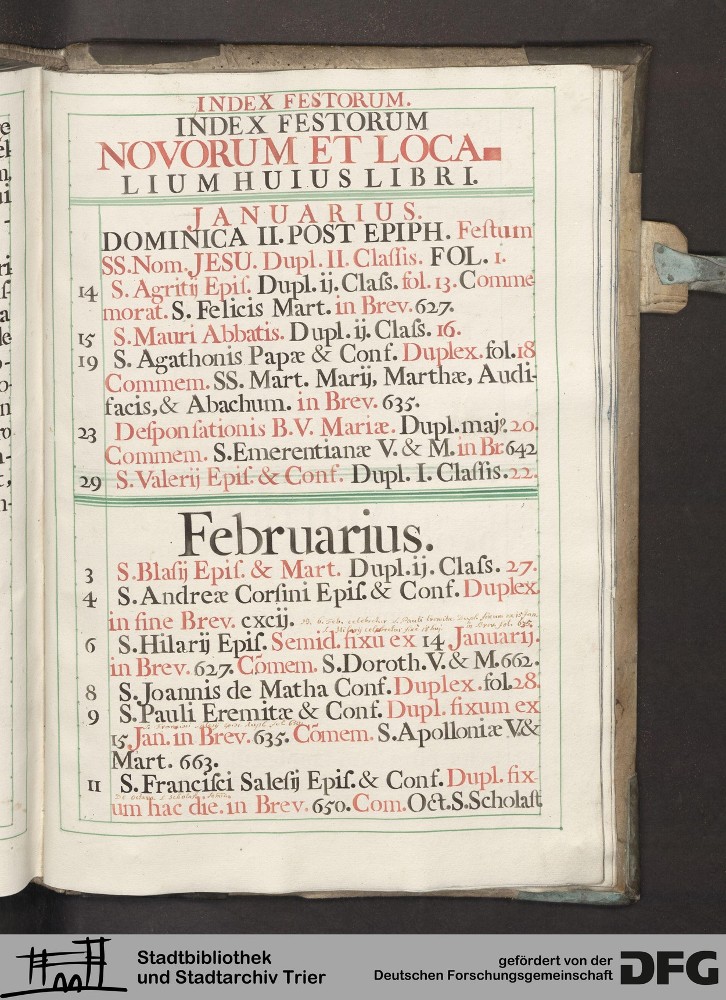 INDEX FESTORUM.
INDEX FESTORUM
NOVORUM ET LOCA
LIUM HUIUS LIBRI.
JANUARIUS.
DOMINICA II. POST EPIPH. Feſtum
SS. Nom. JESU. Dupl. II. Claſſis. FOL. 1.
14 S. Agritij Epiſ. Dupl. ij. Claſs. fol. 13. Comme
morat. S. Felicis Mart. in Brev. 627.
15 S. Mauri Abbatis. Dupl. ij. Claſs. 16.
19 S. Agathonis Papæ & Conf. Duplex. fol. 18
Commem. SS. Mart. Marij, Marthæ, Audi-
facis, & Abachum. in Brev. 635.
23 Deſponſationis B.V. Mariæ. Dupl. majº. 20.
Commem. S. Emerentianæ V. & M. in Br. 642
29 S. Valerij Epiſ. & Conf. Dupl. I. Claſſis. 22.
Februarius.
3 S. Blaſij Epiſ. & Mart. Dupl. ij. Claſs. 27.
4 S. Andreæ Corſini Epiſ. & Conf. Duplex
in fine Brev. cxcij.
6 S. Hilarij Epiſ. Semid. fixū ex 14 Januarij.
in Brev. 627. Cōmem. S. Doroth. V. & M. 662.
8 S. Joannis de Matha Conf. Duplex. fol. 28.
9 S. Pauli Eremitæ & Conf. Dupl. fixum ex
15 Jan. in Brev. 635. Cōmem. S. Apolloniæ V. &
Mart. 663.
11 S. Franciſci Saleſij Epiſ. & Conf. Dupl. fix-
um hac die. in Brev. 650. Com. Oct. S. Scholaſt
Stadtbibliothek
und Stadtarchiv Trier
gefördert von der
Deutschen Forschungsgemeinschaft
DFG